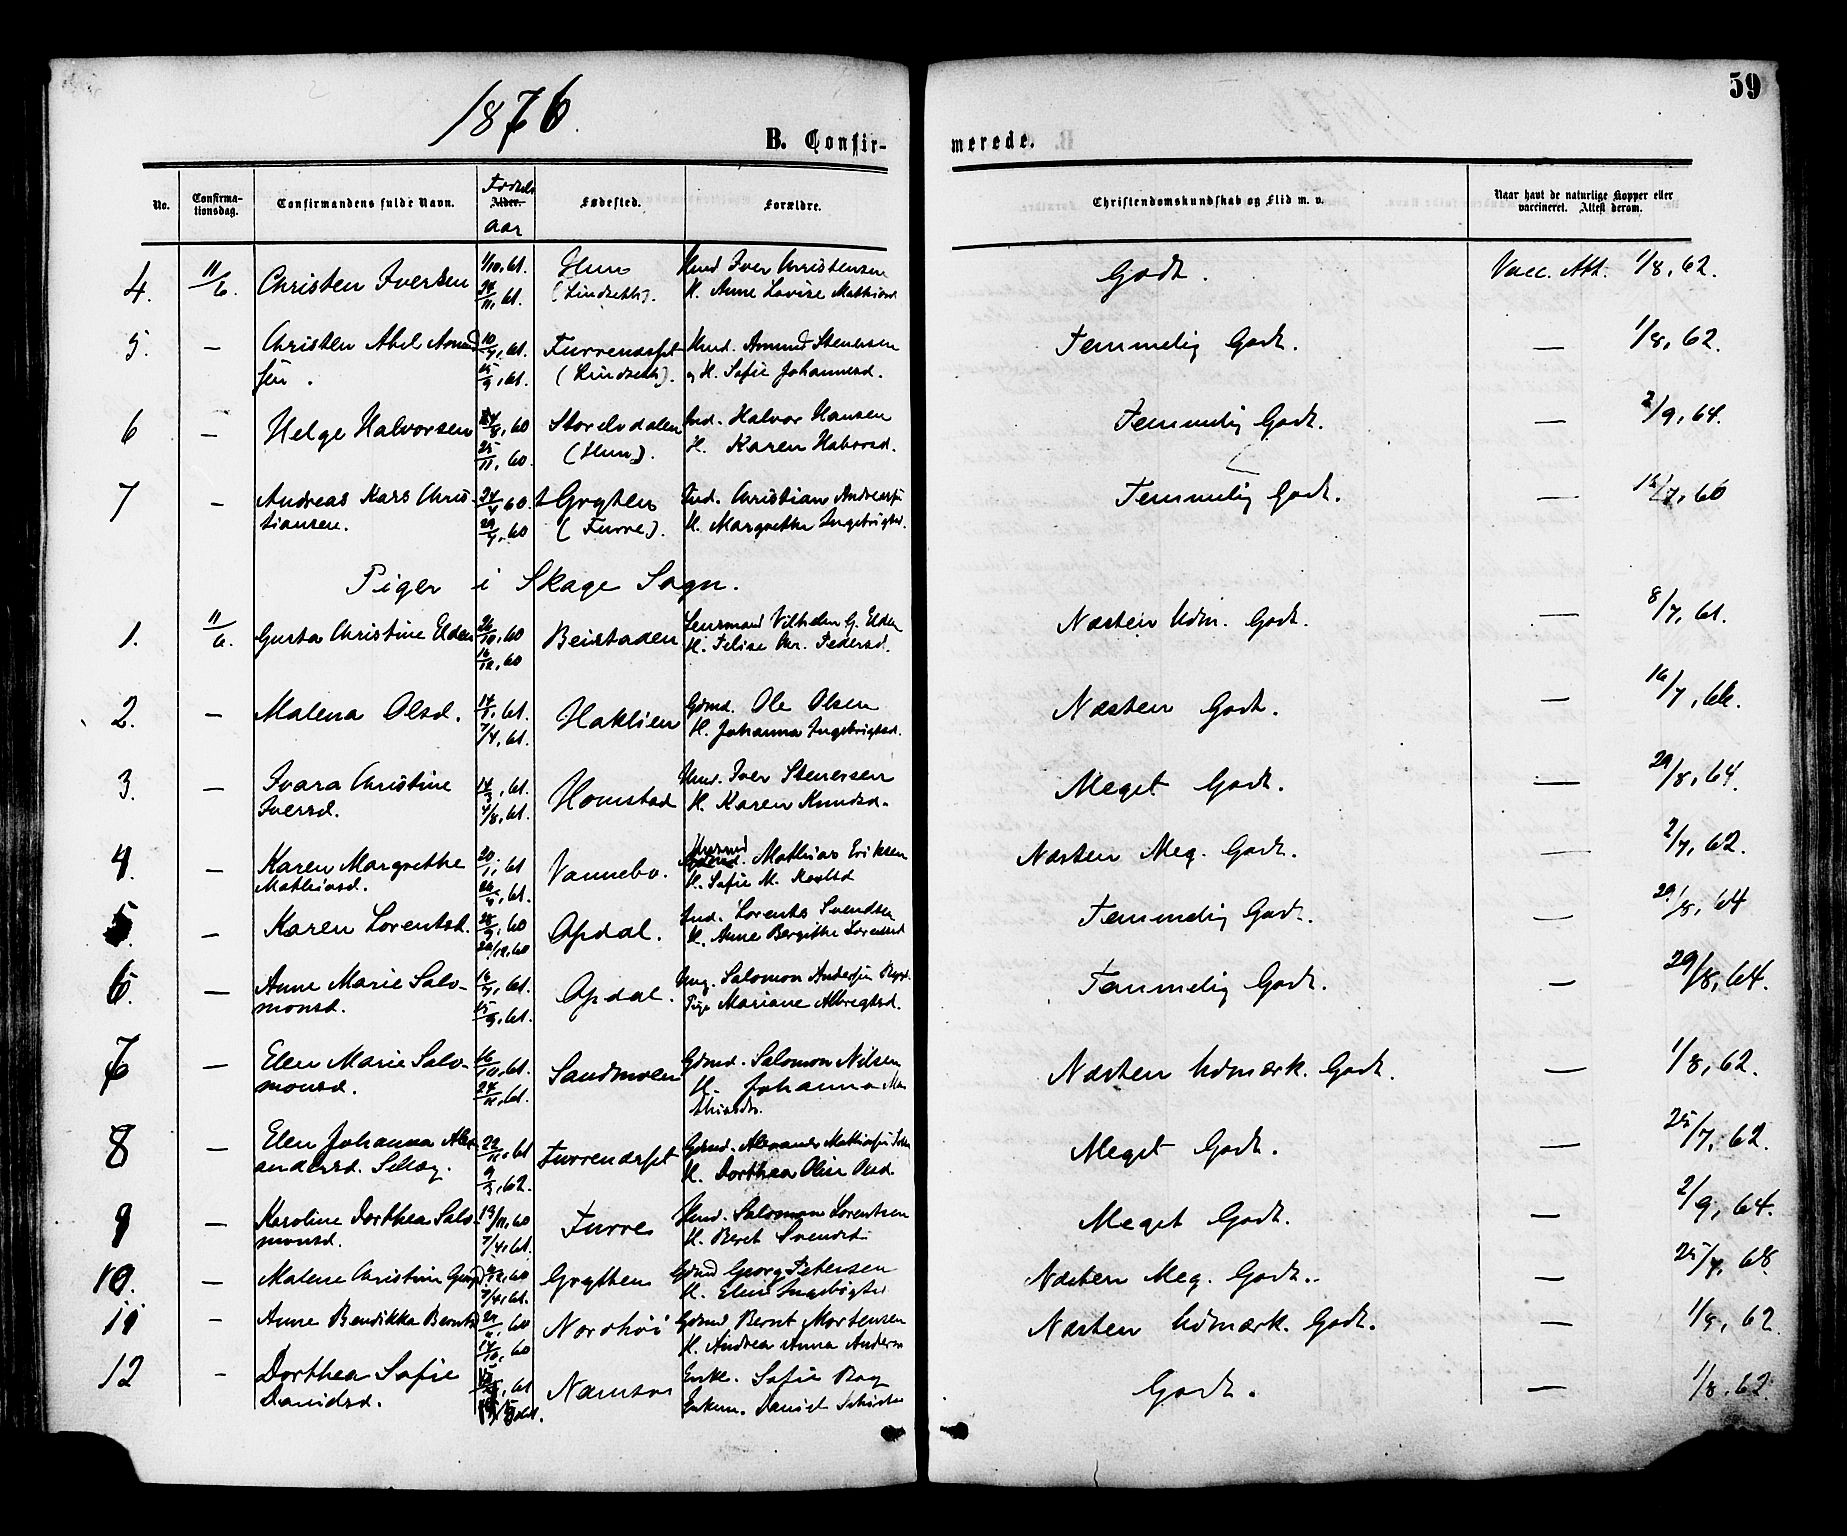 59
1876.
B. Confirmerede.
No. Confirmationsdag. Confirmandens fulde Navn. Fødsels Alder. Aar Fødested. Forældre. Christendomskundskab og Flid m. v. Naar havt de naturlige Kopper eller vaccineret. Attest derom.
4. 11/6. Christen Iversen 1/10, 61. 24/11, 61. Hun (Lindseth). Hmd Iver Christensen H. Anne Lovise Godt. Vacc. Att. 1/8, 62.
5. — Christen Abel Amundsen. Furrenæsset (Lindseth). Hmd. Amund Stenersen og H. Sofie Johannesd. Temmelig Godt. — 1/8, 62.
6 — Helge Halvorsen Storelvdalen (Hun). Ind. Halvor Hansen H. Karen Temmelig Godt. — 2/9, 64.
7 — Andreas Lars Christiansen. 24/4 60 29/7, 60 Grytten (Furre). Ind. Christian H. Margrethe Ingebrigtsd. Temmelig Godt. — 60
Piger i Skage Sogn.
1. 11/6. Gusta Christine Elden 26/10, 60 16/12, 60 Beistaden Lensmand Vilhelm G. Elden H. Felise Chr. Pedersd. Næsten Udm. Godt. — 8/7, 61.
2. — Malena Olsd. 7/4, 61. Haklien Gdmd. Ole Olsen H. Johanna Ingebrigtsd. Næsten Godt. — 16/7,
3. — Ivara Christine Iversd. 14/3, 61. 4/8, 61. Homstad Hmd. Iver Stenersen H. Karen Knudsd. Meget Godt. — 29/8, 64.
4. — Karen Margrethe Mathiasd. 20/1, 61 Vannebo. Mathias Eriksen H. Sofie M. Næsten Meg. Godt. — 2/7, 62.
5. — Karen Lorentsd. 28/9, 60 Opdal. Ind. Lorents Svendsen H. Anne Bergithe Lorentsd Temmelig Godt. — 29/8, 64
6. — Anne Marie Salomonsd. Opdal. Ung. Salomon Pige Mariane Albregtsd. Temmelig Godt. — 29/8, 64.
7 — Elen Marie Salomonsd. 16/10, 61. Sandmoen Gdmd. Salomon Nilsen H. Johanna Mathiasdr. Næsten Udmærk. Godt. — 1/8, 62.
8 — Elen Johanna Alexandersd. Selløg. 22/11, 61 9/3, 62. Furrenæsset Gdmd. H. Dorthea Oline Olsd. Meget Godt. — 25/7, 62.
9 — Karoline Dorthea Salomonsd. 19/11, 60 7/4, 61. Furre Hmd. Salomon Lorentsen H. Beret Svendsd. Meget Godt. — 2/9, 64.
10. — Malene Christine Georgsd. 7/4, 61. Grytten Gdmd Georg Petersen H. Elen Næsten Meg. Godt. — 25/7, 68
11 — Anne Bendikka Berntsd Nordhøi Gdmd Bernt Mortensen H. Andrea Anna Næsten Udmærk. Godt. — 62
12 — Dorthea Sofie Danielsd. Namsos Enke. Sofie Enkem. Daniel Godt. — 1/8, 62.